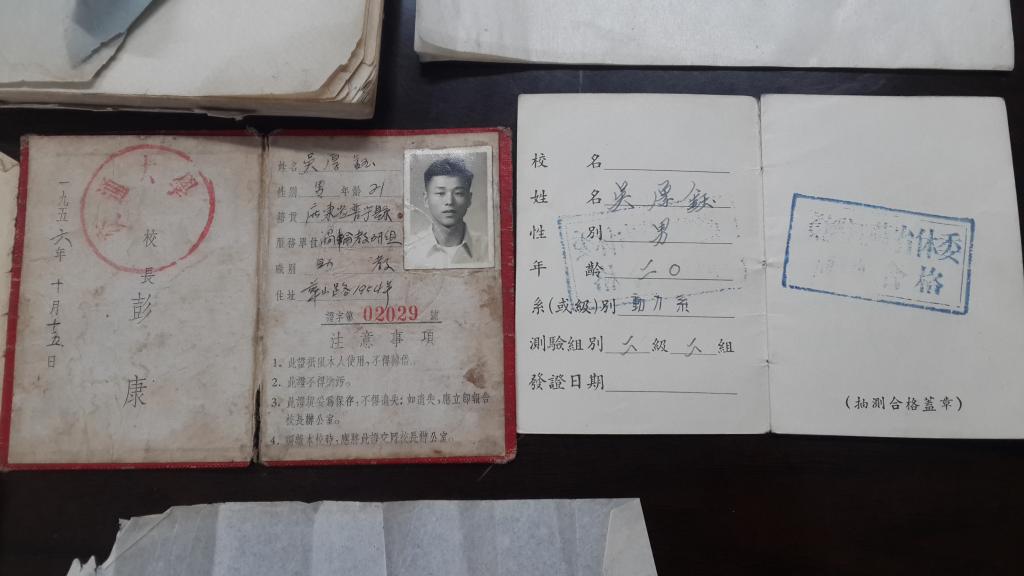 交通大學
一九五六年十月十五日
校長彭康
姓名 吳厚
性別 男 年齡 21
籍貫 廣東省普寧縣
服務單位 渦輪教研組
職別 助教
住址 華山路1954
證字第 02029 號
注意事項
1、此證祇限本人使用,不得轉借。
2、此證不得塗污。
3、此證須妥爲保存,不得遺失:如遺失,應立卽報告
校長辦公室。
4、本校時,應將此證交囘校長辦公室。
校名
姓名 吴厚
性別 男
年齡 二〇
系(或級)別 動力系
測驗組別 二 級 二 組
發證日期
体委
合格
(抽測合格蓋章)